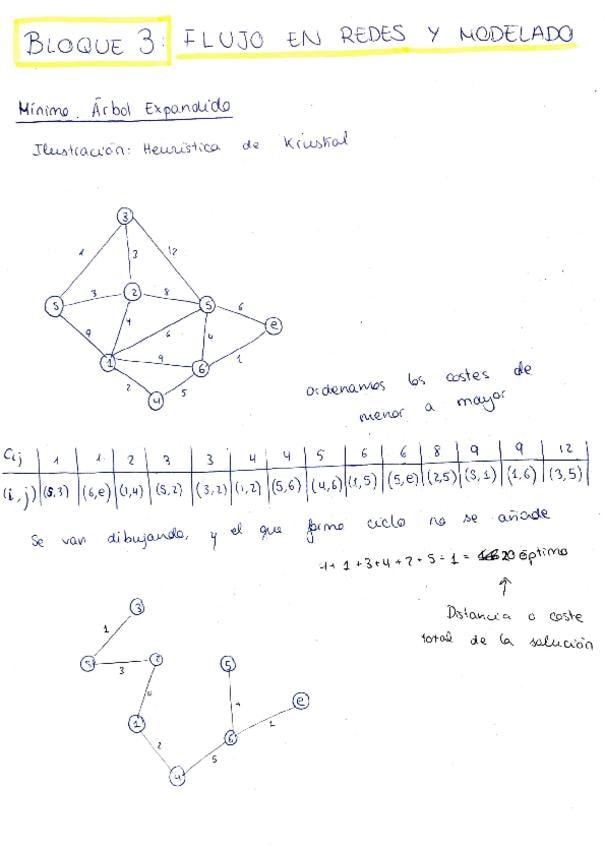 BLOQUE 3: FLUJO EN REDES Y MODELADO
Mínimo Árbol Expandido
Ilustración: Heurística de Kruskal
3
1
3
12
S
3
2
8
5
6
e
9
4
6
4
1
9
6
1
2
5
4
Ordenamos los costes de
menor a mayor
Cij | 1 | 1 | 2 | 3 | 3 | 4 | 4 | 5 | 6 | 6 | 8 | 9 | 9 | 12
(i,j) | (S,3) | (6,e) | (1,4) | (S,2) | (3,2) | (1,2) | (5,6) | (4,6) | (1,5) | (5,e) | (2,5) | (S,1) | (1,6) | (3,5)
Se van dibujando, y el que forma ciclo no se añade
4+1+3+4+2+5+1= 20 óptimo
Distancia o coste
total de la solución
3
1
S
3
2
5
e
4
1
4
6
1
2
5
4